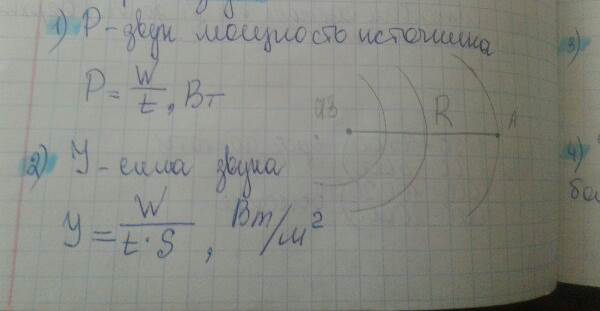 1) P - звук мощность источника
P = W/t, Вт
ИЗ
R
A
2) У - сила звука
У = W/(t·S), Вт/м²
3)
4)
бол